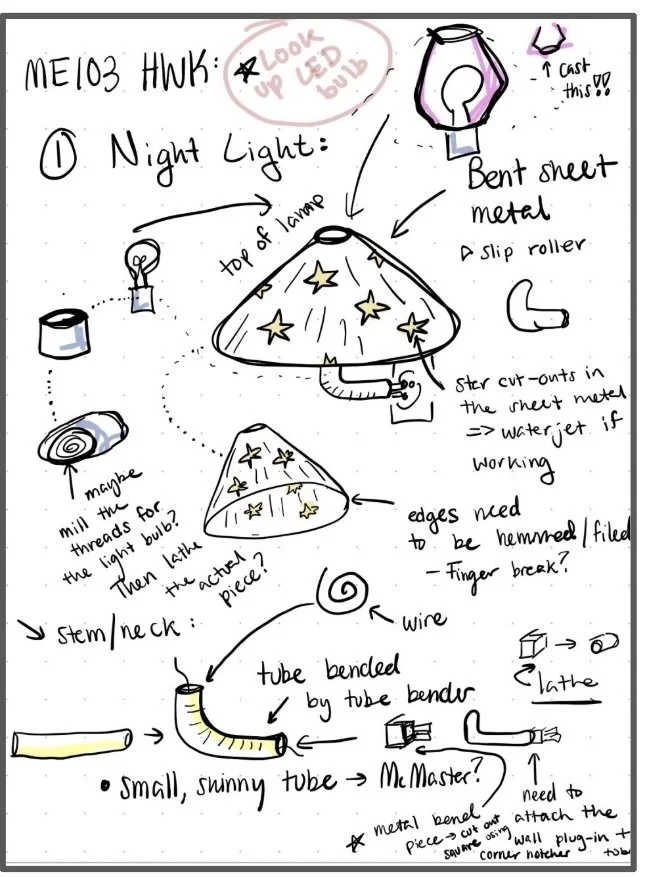 ME103 HWK:
★ Look
up LED
bulb
↑ Cast
this!!
① Night Light:
Bent sheet
metal
▷ slip roller
top of lamp
star cut-outs in
the sheet metal
=> waterjet if
working
maybe
mill the
threads for
the light bulb?
Then lathe
the actual
piece?
edges need
to be hemmed/filed
- Finger break?
↘ Stem/neck:
wire
tube bended
by tube bender
lathe
• small, skinny tube → McMaster?
need to
attach the
wall plug-in +
tub
★ metal bend
piece → cut out
square using
corner notcher